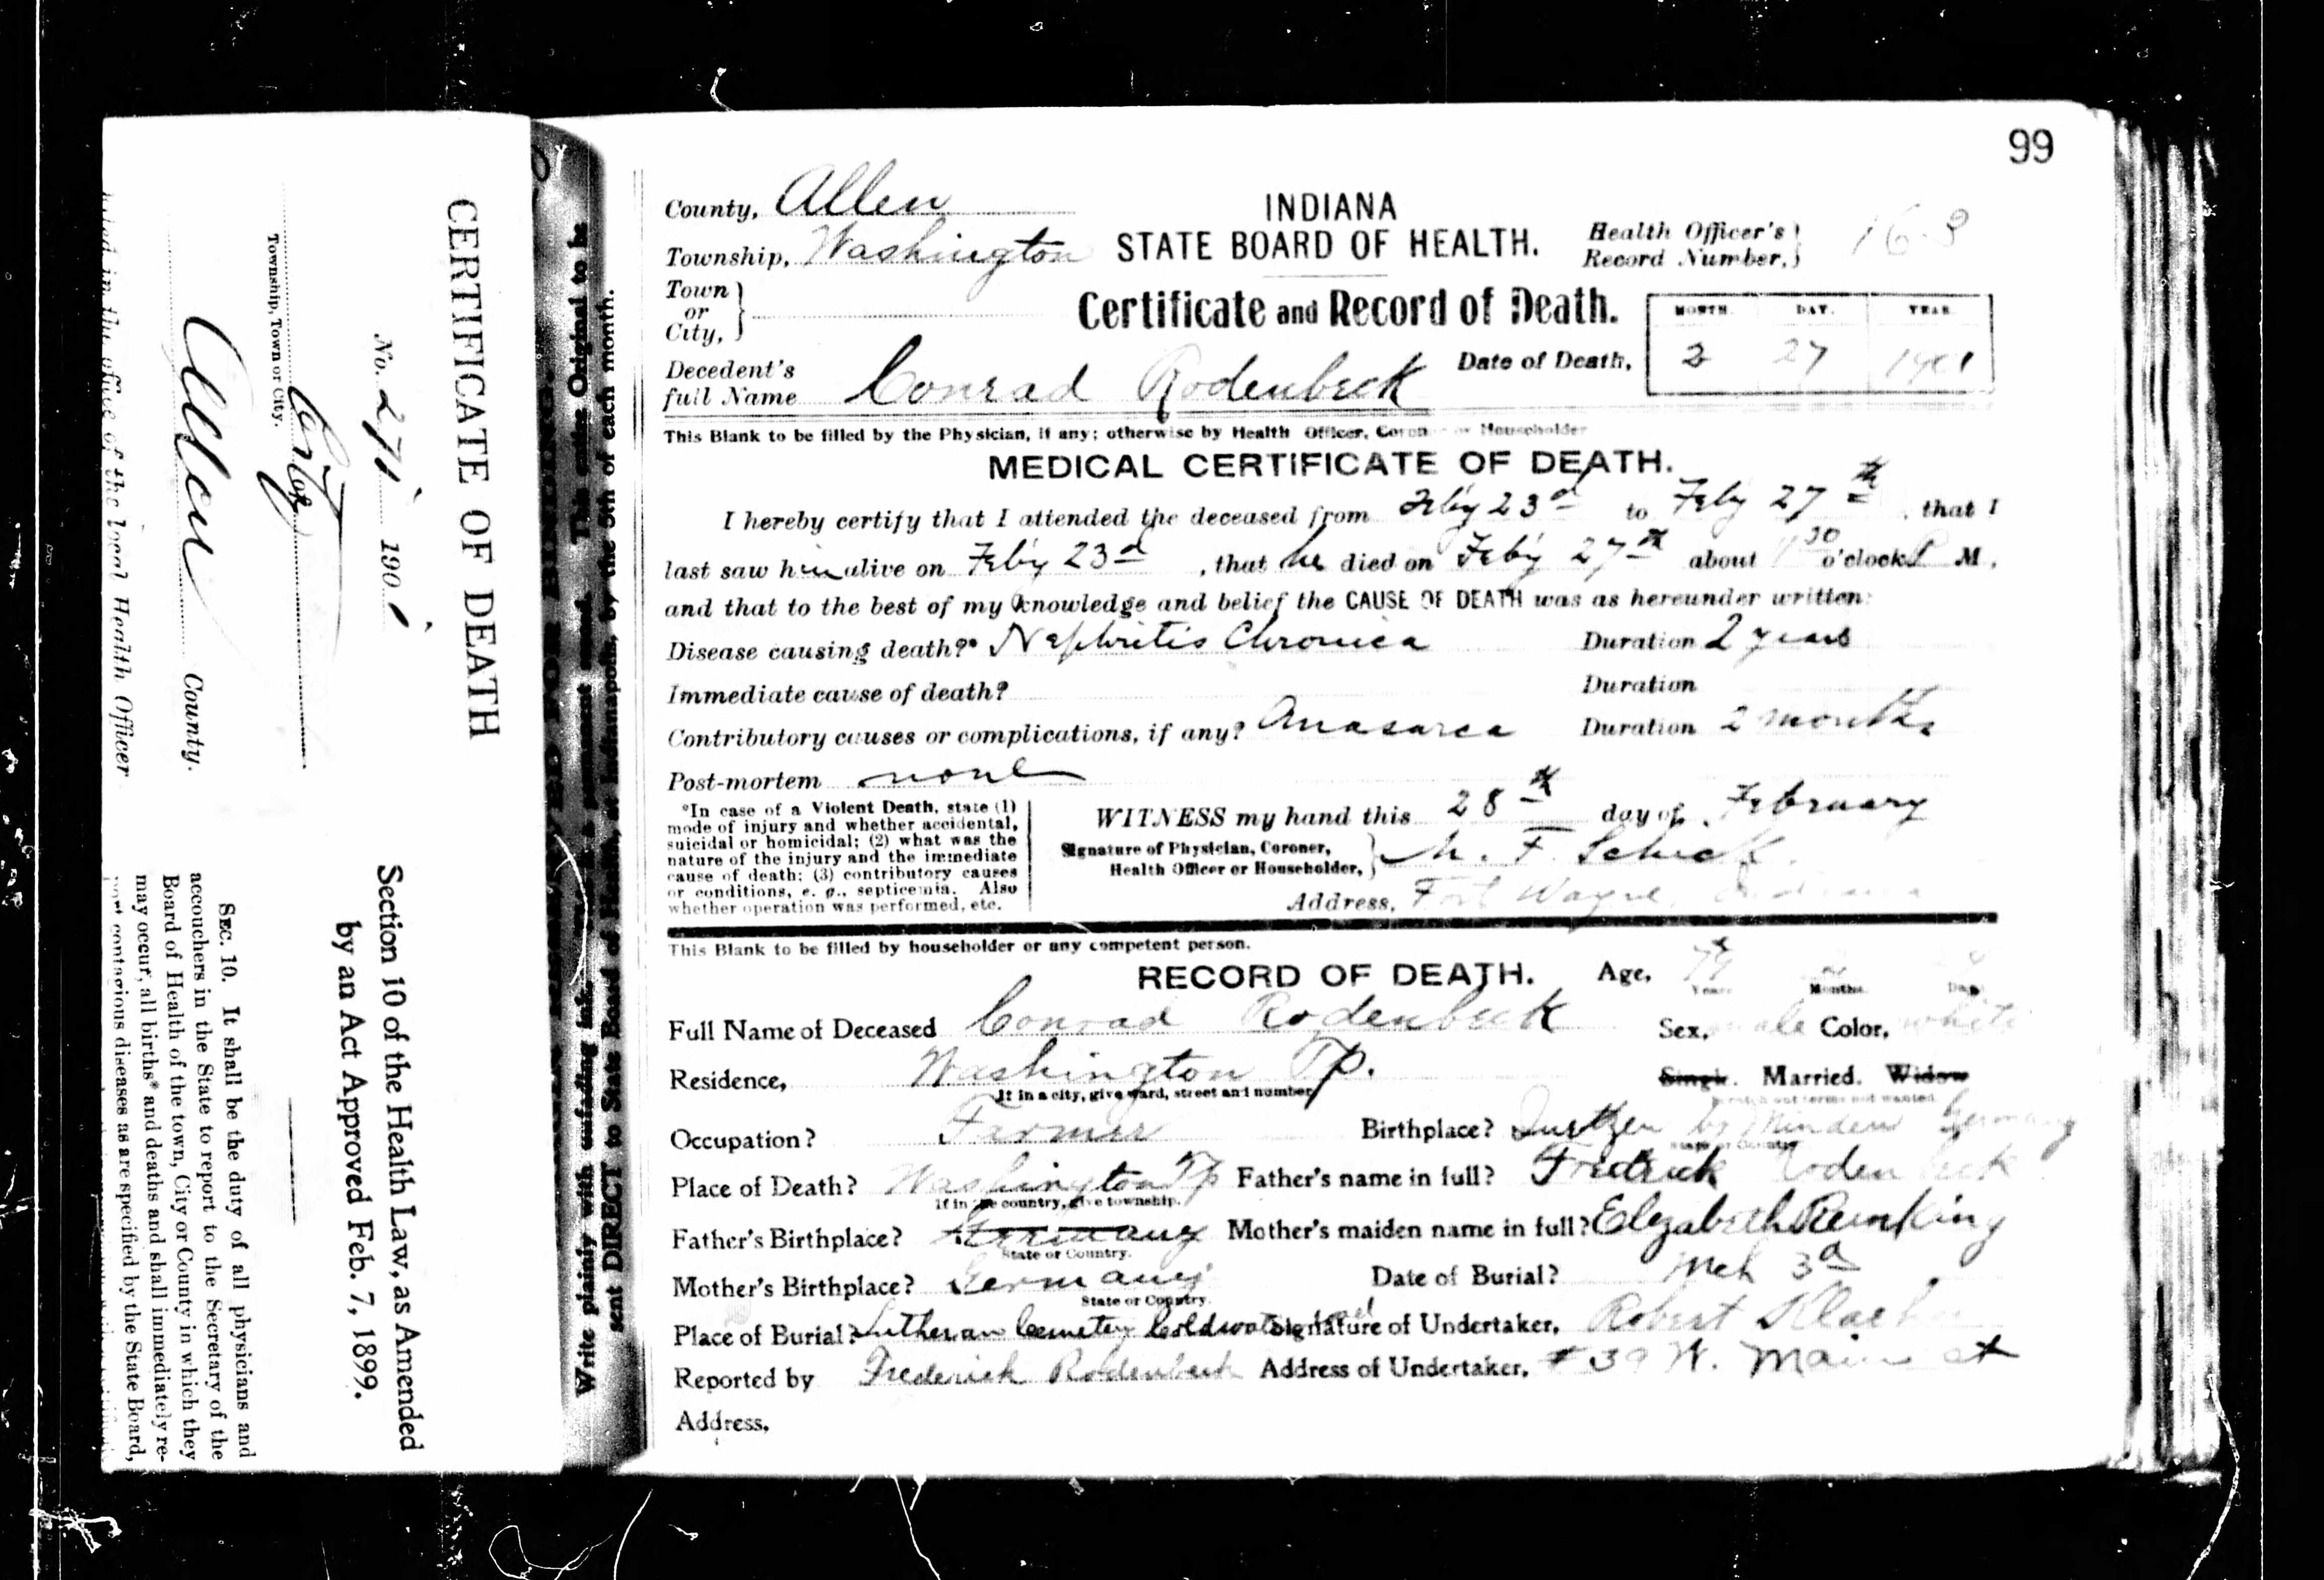 99
County, Allen
INDIANA
Township, Washington
STATE BOARD OF HEALTH.
Health Officer's
Record Number,
Town
or
City,
Certificate and Record of Death.
MONTH. DAY. YEAR.
Decedent's
full Name Conrad Rodenbeck
Date of Death, 2 27 1901
This Blank to be filled by the Physician, if any; otherwise by Health Officer, Coroner or Householder
MEDICAL CERTIFICATE OF DEATH.
I hereby certify that I attended the deceased from Feby 23d to Feby 27th, that I
last saw him alive on Feby 23d, that he died on Feby 27th about 30 o'clock P M,
and that to the best of my knowledge and belief the CAUSE OF DEATH was as hereunder written:
Disease causing death?* Nephritis Chronica Duration 2 years
Immediate cause of death? Duration
Contributory causes or complications, if any? Anasarca Duration 2 months
Post-mortem none
*In case of a Violent Death, state (1)
mode of injury and whether accidental,
suicidal or homicidal; (2) what was the
nature of the injury and the immediate
cause of death; (3) contributory causes
or conditions, e. g., septicemia. Also
whether operation was performed, etc.
WITNESS my hand this 28th day of February
Signature of Physician, Coroner,
Health Officer or Householder,
Address, Fort Wayne, Indiana
This Blank to be filled by householder or any competent person.
RECORD OF DEATH.
Age,
Years Months. Days
Full Name of Deceased Conrad Rodenbeck Sex, male Color, white
Residence, Washington Tp. Single. Married. Widow
If in a city, give ward, street and number
scratch out terms not wanted
Occupation? Farmer Birthplace? by Minden Germany
State or Country
Place of Death? Washington Tp Father's name in full? Fredrick Rodenbeck
If in the country, give township.
Father's Birthplace? Germany Mother's maiden name in full? Elizabeth
State or Country.
Mother's Birthplace? Germany Date of Burial? Mch 3d
State or Country.
Place of Burial? Lutheran Cemetery Coldwater road Signature of Undertaker, Robert
Reported by Frederick Rodenbeck Address of Undertaker, # 39 W. Main st
Address,
Write plainly with unfading ink
sent DIRECT to State Board of Health, at Indianapolis, by the 5th of each month.
This entire Original to be
CERTIFICATE OF DEATH
No. 271 1901
City
Township, Town or City.
Allen County.
in the office of the local Health Officer
Section 10 of the Health Law, as Amended
by an Act Approved Feb. 7, 1899.
SEC. 10. It shall be the duty of all physicians and
accouchers in the State to report to the Secretary of the
Board of Health of the town, City or County in which they
may occur, all births* and deaths and shall immediately re-
port contagious diseases as are specified by the State Board,